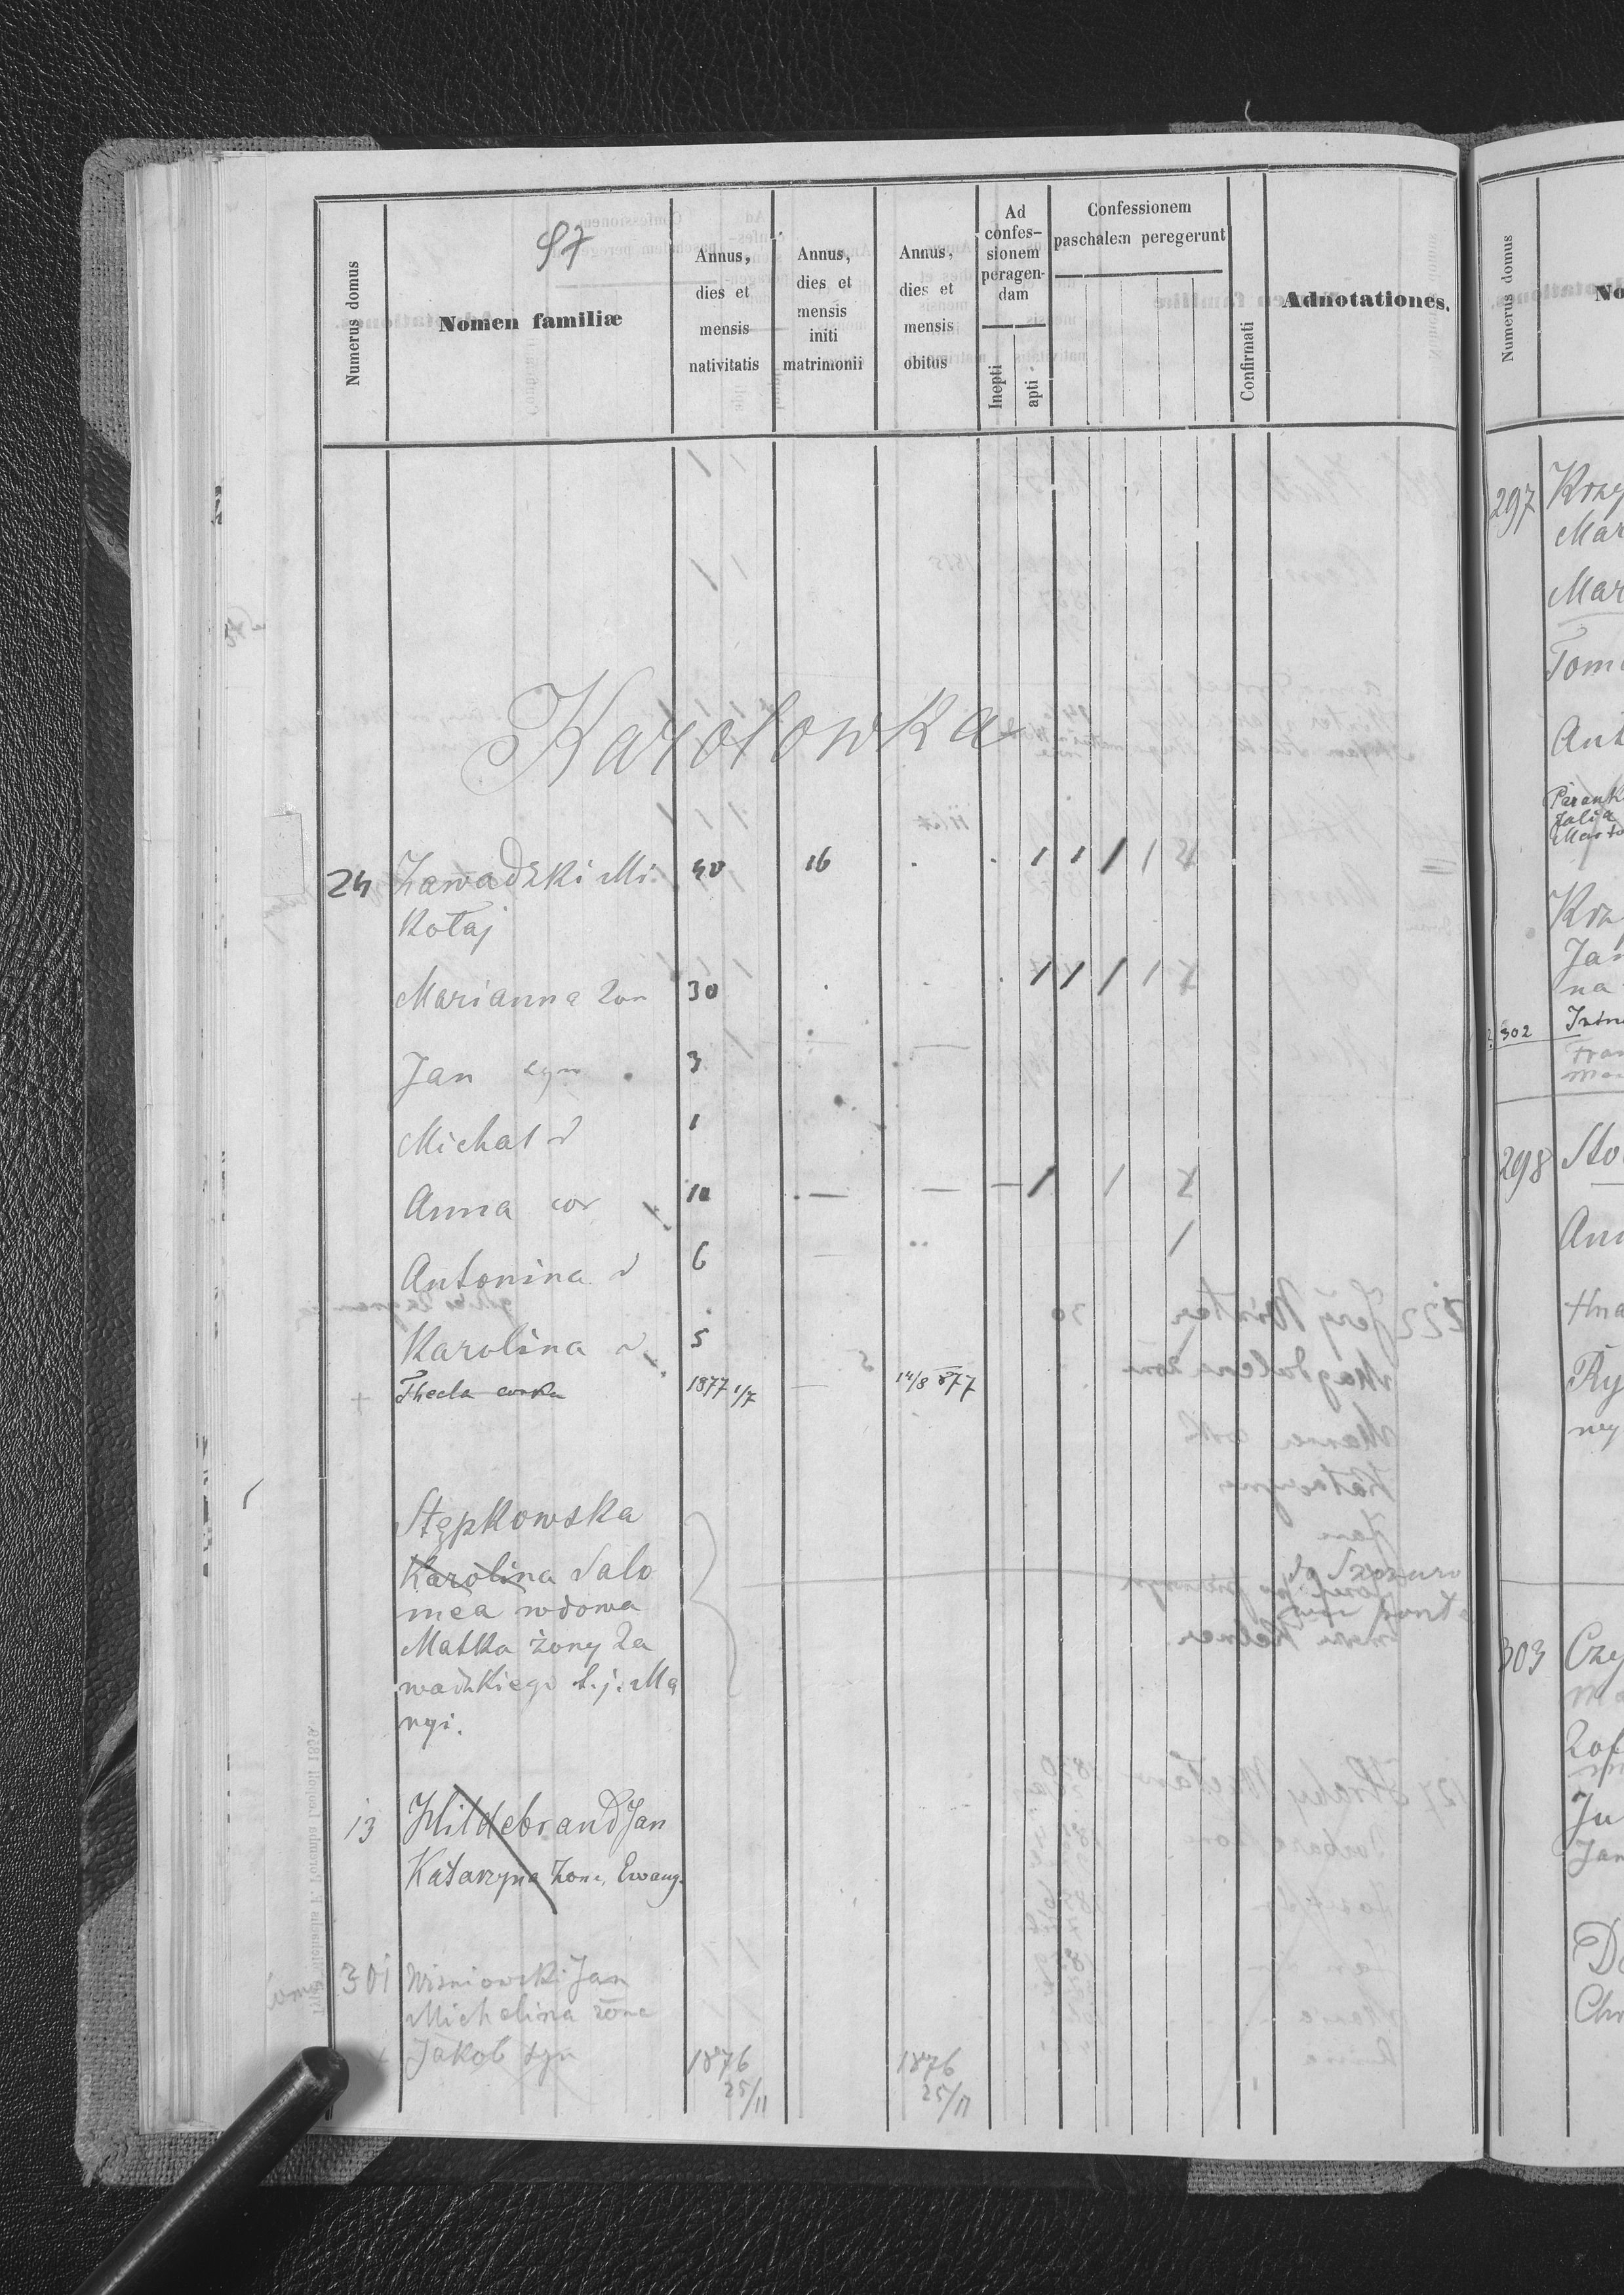 97
Numerus domus
Nomen familiæ
Annus, dies et mensis nativitatis
Annus, dies et mensis initi matrimonii
Annus, dies et mensis obitus
Ad confes- sionem peragen- dam
Inepti
apti
Confessionem paschalem peregerunt
Confirmati
Adnotationes.
Karolowka
24 Zawadzki Mi 40 16
kołaj
Marianna żon 30
Jan syn 3
Michał d 1
Anna cor 10
Antonina d 6
Karolina d 5
Thecla corka 1877 1/7 — 14/8 877
Stępkowska
Karolina Salo
mea wdowa
Matka żony Za
wadzkiego t.j. Ma
ryi.
13 Hildebrand Jan
Katarzyna żona, Ewang.
301 Wisniowski Jan
Michelina żona
Jakob syn 1876 1876
25/11 25/11
Numerus domus
No
297 Krzy
Mar
Mar
Tom
Ant
Parank
Julia
Krz
Jan
na
302
298 Sto
Ann
Hna
Ry
ney
303 Czy
Zof
Ju
Jan
Do
Chr